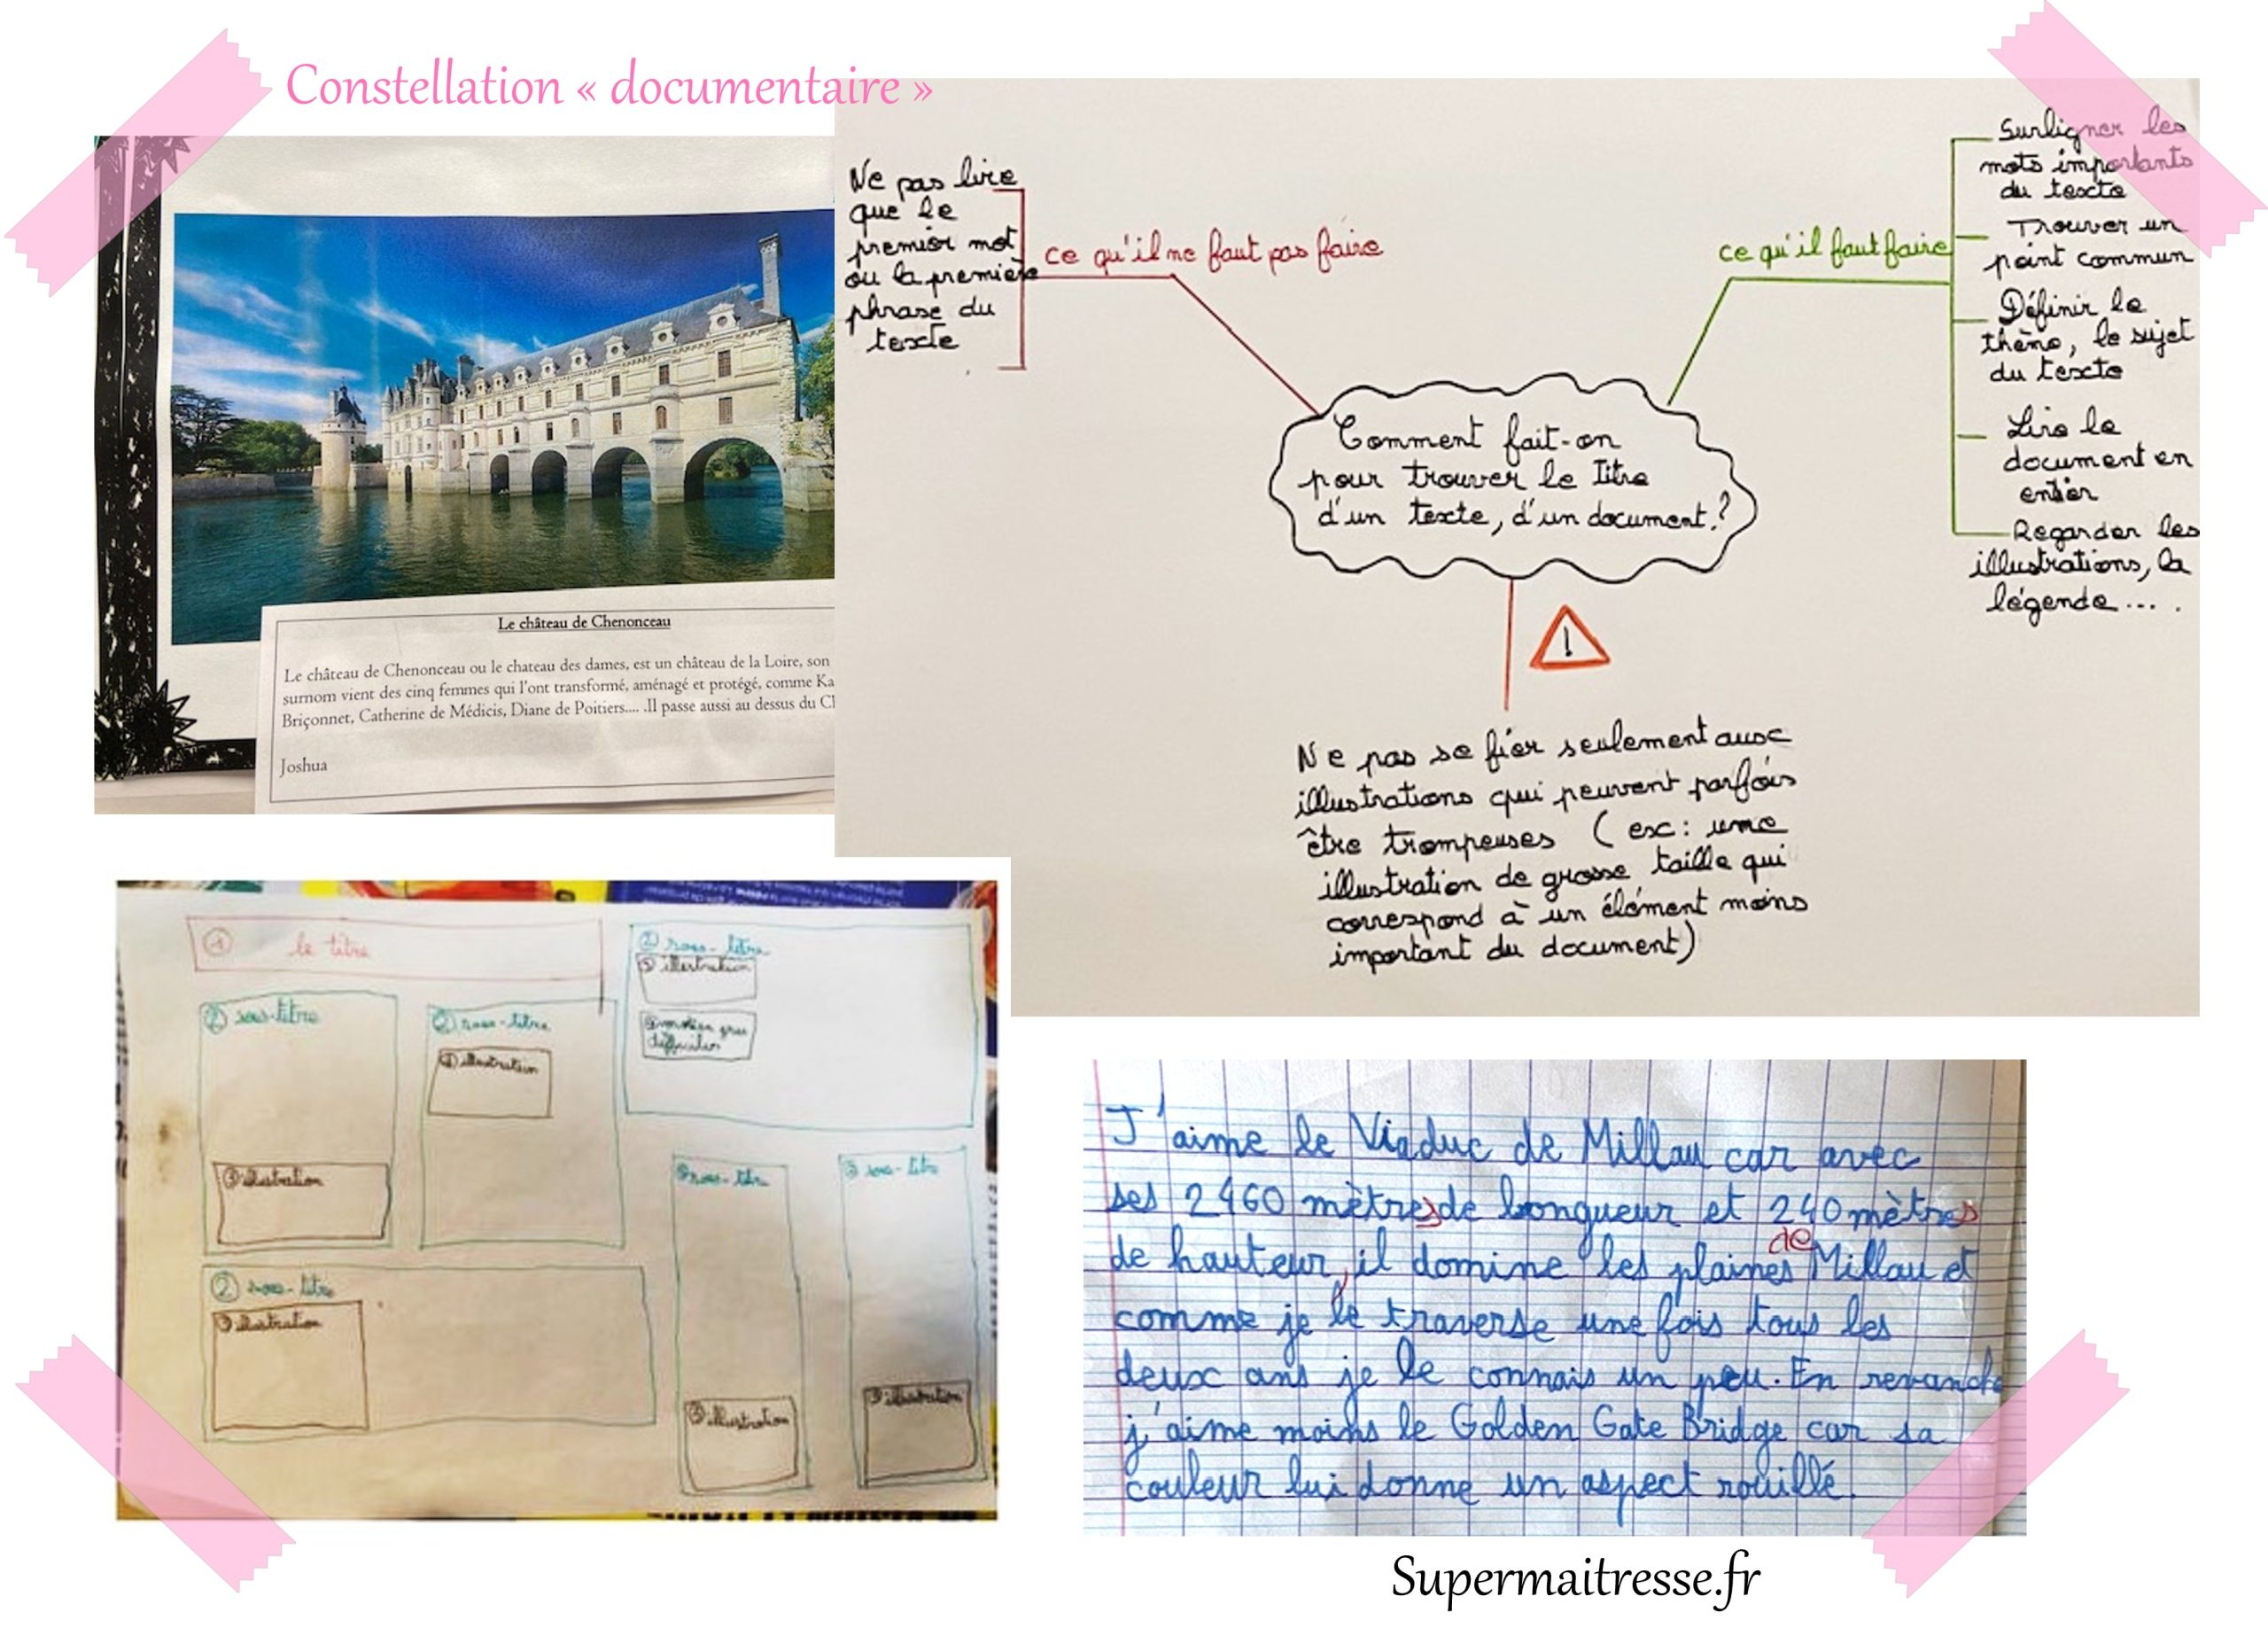 Constellation « documentaire »
Le château de Chenonceau
Le château de Chenonceau ou le chateau des dames, est un château de la Loire, son
surnom vient des cinq femmes qui l'ont transformé, aménagé et protégé, comme Ka
Briçonnet, Catherine de Médicis, Diane de Poitiers.... .Il passe aussi au dessus du Ch
Joshua
Ne pas lire
que le
premier mot
ou la première
phrase du
texte
ce qu'il ne faut pas faire
ce qu'il faut faire
Surligner les
mots importants
du texte
Trouver un
point commun
Définir le
thème, le sujet
du texte
Lire le
document en
entier
Regarder les
illustrations, la
légende... .
Comment fait-on
pour trouver le titre
d'un texte, d'un document?
!
Ne pas se fier seulement aux
illustrations qui peuvent parfois
être trompeuses (ex: une
illustration de grosse taille qui
correspond à un élément moins
important du document)
① le titre
② sous-titre
③ illustration
② sous-titre
illustration
② sous-titre
③ illustration
② sous-titre
③ illustration
sous-titre
③ illustration
sous-titre
③ illustration
J'aime le Viaduc de Millau car avec
ses 2460 mètres de longueur et 240 mètres
de hauteur, il domine les plaines de Millau et
comme je le traverse une fois tous les
deux ans je le connais un peu. En revanche
j'aime moins le Golden Gate Bridge car sa
couleur lui donne un aspect rouillé.
Supermaitresse.fr